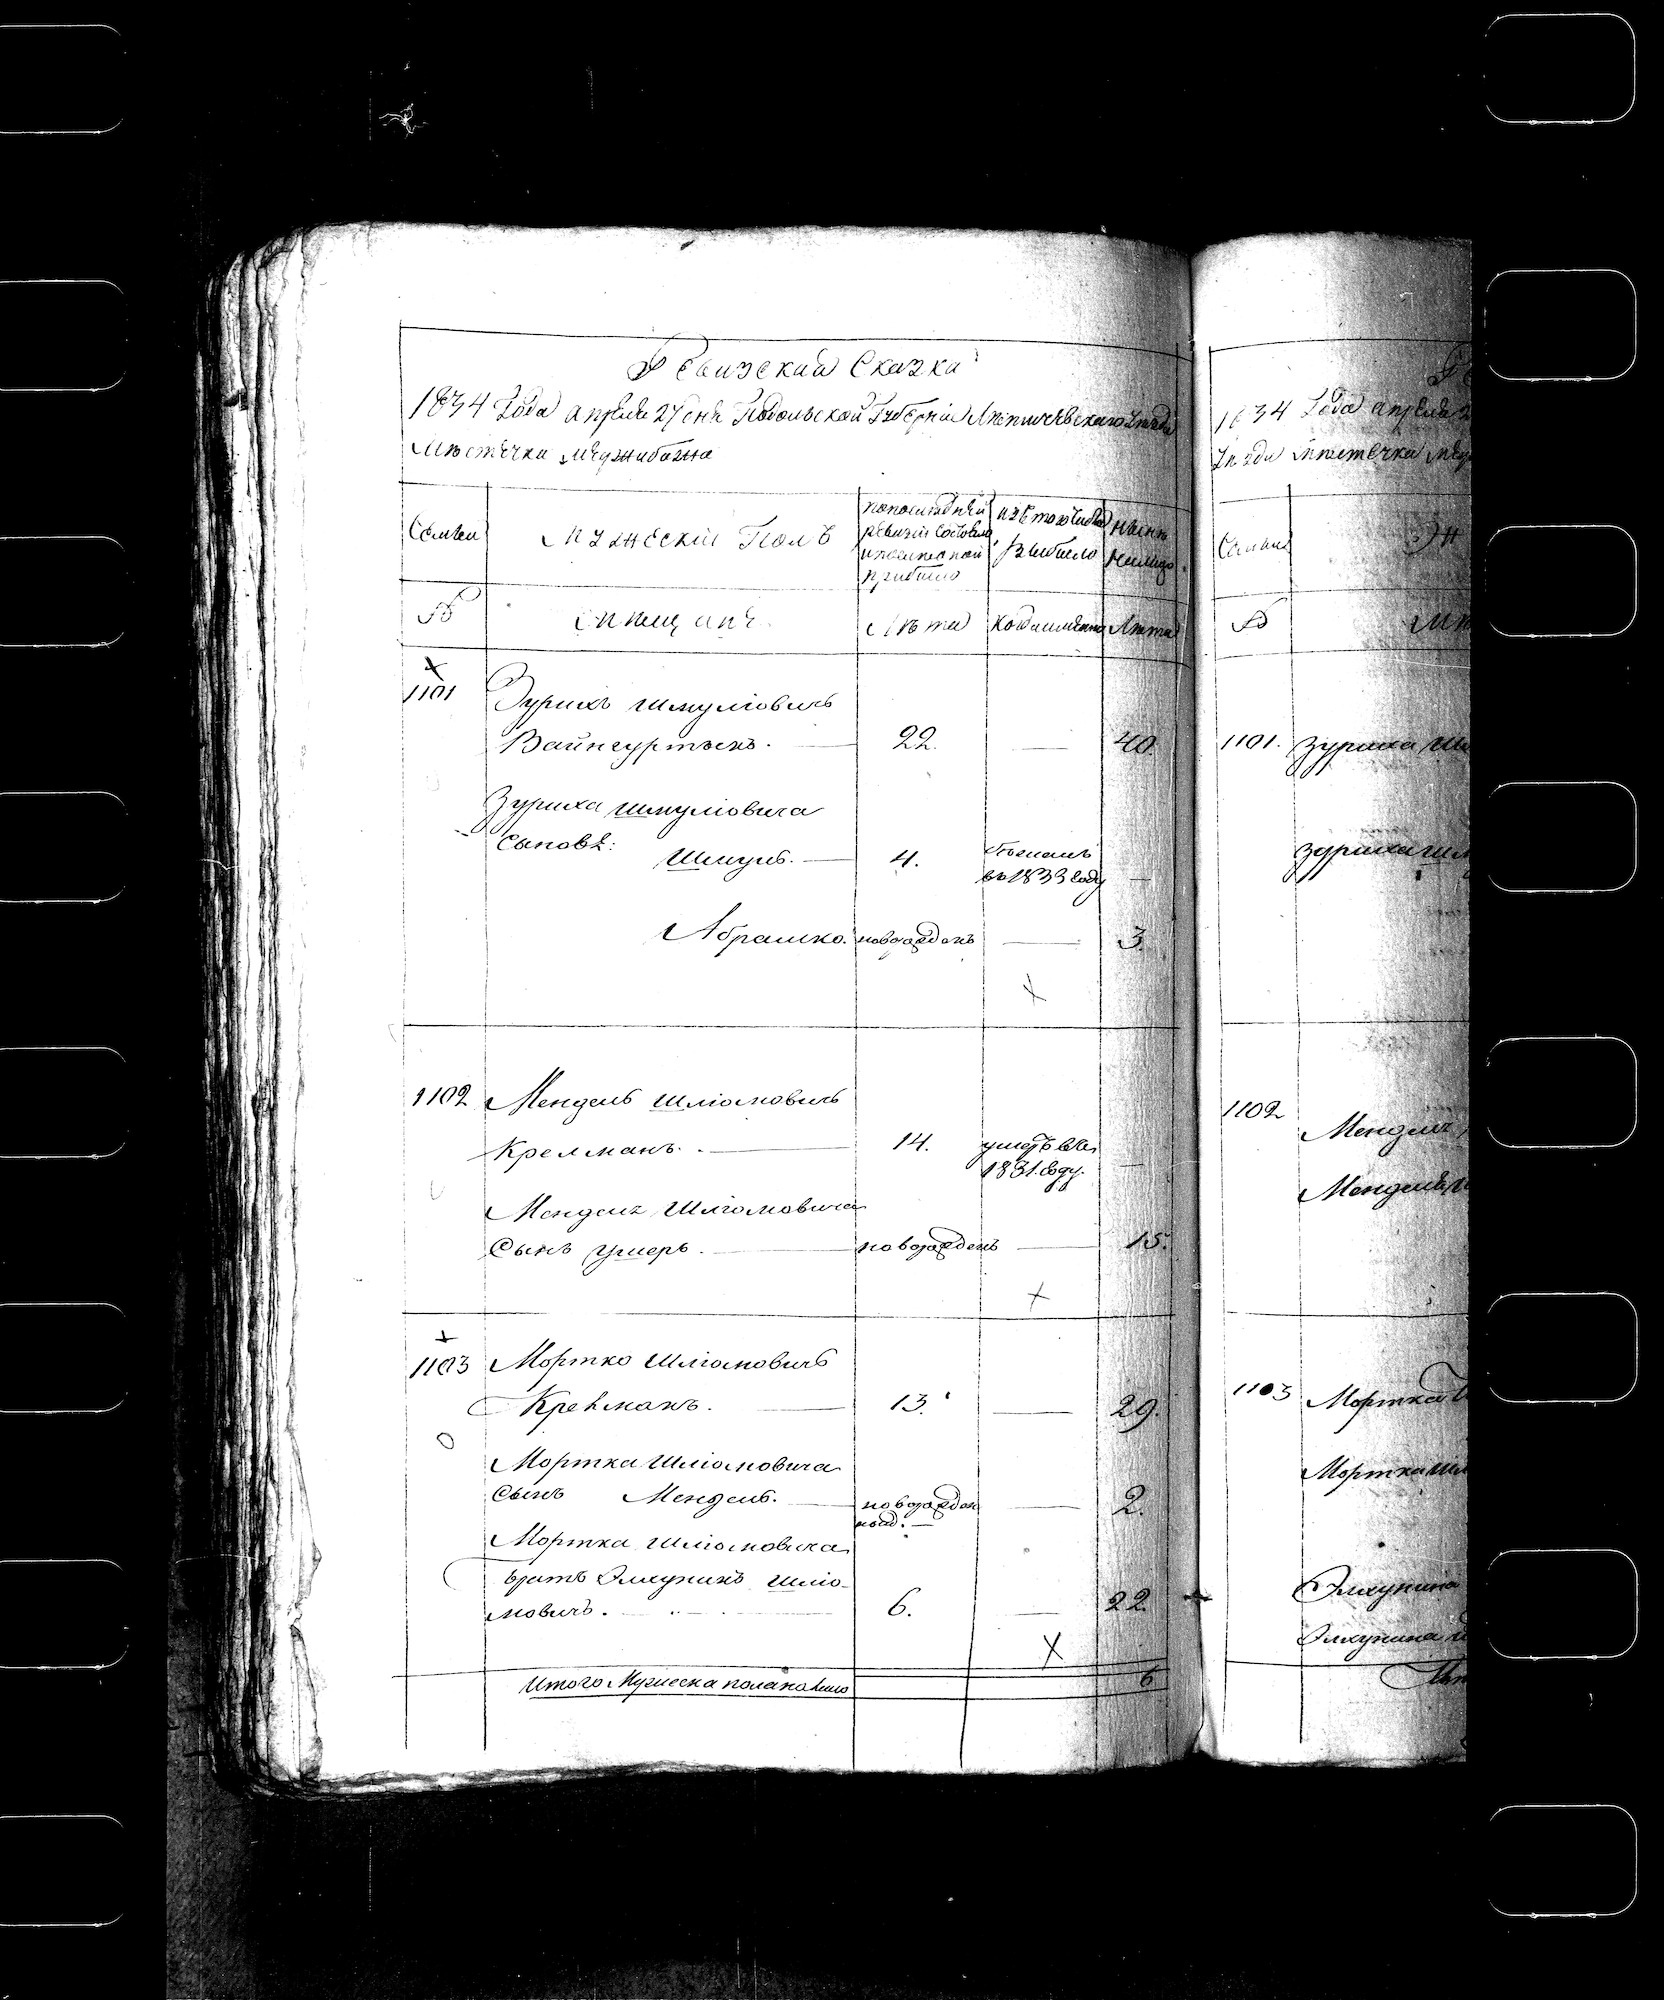 Ревизская Сказка
1834 Года апреля 27 дня Подольской Губернии Летичевского Уезда
Местечка Меджибожа
Семьи
Мужеский Полъ
По последней
ревизии состояло
и после оной
прибыло
Изъ того числа
выбыло
Ныне
на лицо
№
Мещане
Лета
Когда именно
Лета
1101
Зурихъ Шмулiовичъ
Вайнгуртенъ. 22. — 40
Зуриха Шмулiовича
Сыновья:
Шмуль. 4.
въ 1833 году —
Абрашко. новорожденъ — 3.
1102 Мендель Шлiомовичъ
Крелманъ. 14. умеръ въ
1831. году. —
Менделя Шлiомовича
Сынъ Ушеръ. новорожденъ — 15.
1103 Мортко Шлiомовичъ
Крелманъ. 13. — 29.
Мортка Шлiомовича
Сынъ Мендель. новорожден
ный. — 2.
Мортка Шлiомовича
братъ Элкунинъ Шлiо-
мовичъ. 6. — 22
Итого Мужеска пола налицо 6
1834 Года апреля 2
Уезда местечка Меджи
Семьи
№
1101. Зуриха Шм
Зуриха Шм
1102
Менделя
Менделя
1103 Мортка
Мортка Шл
Элкунина
Элкунина